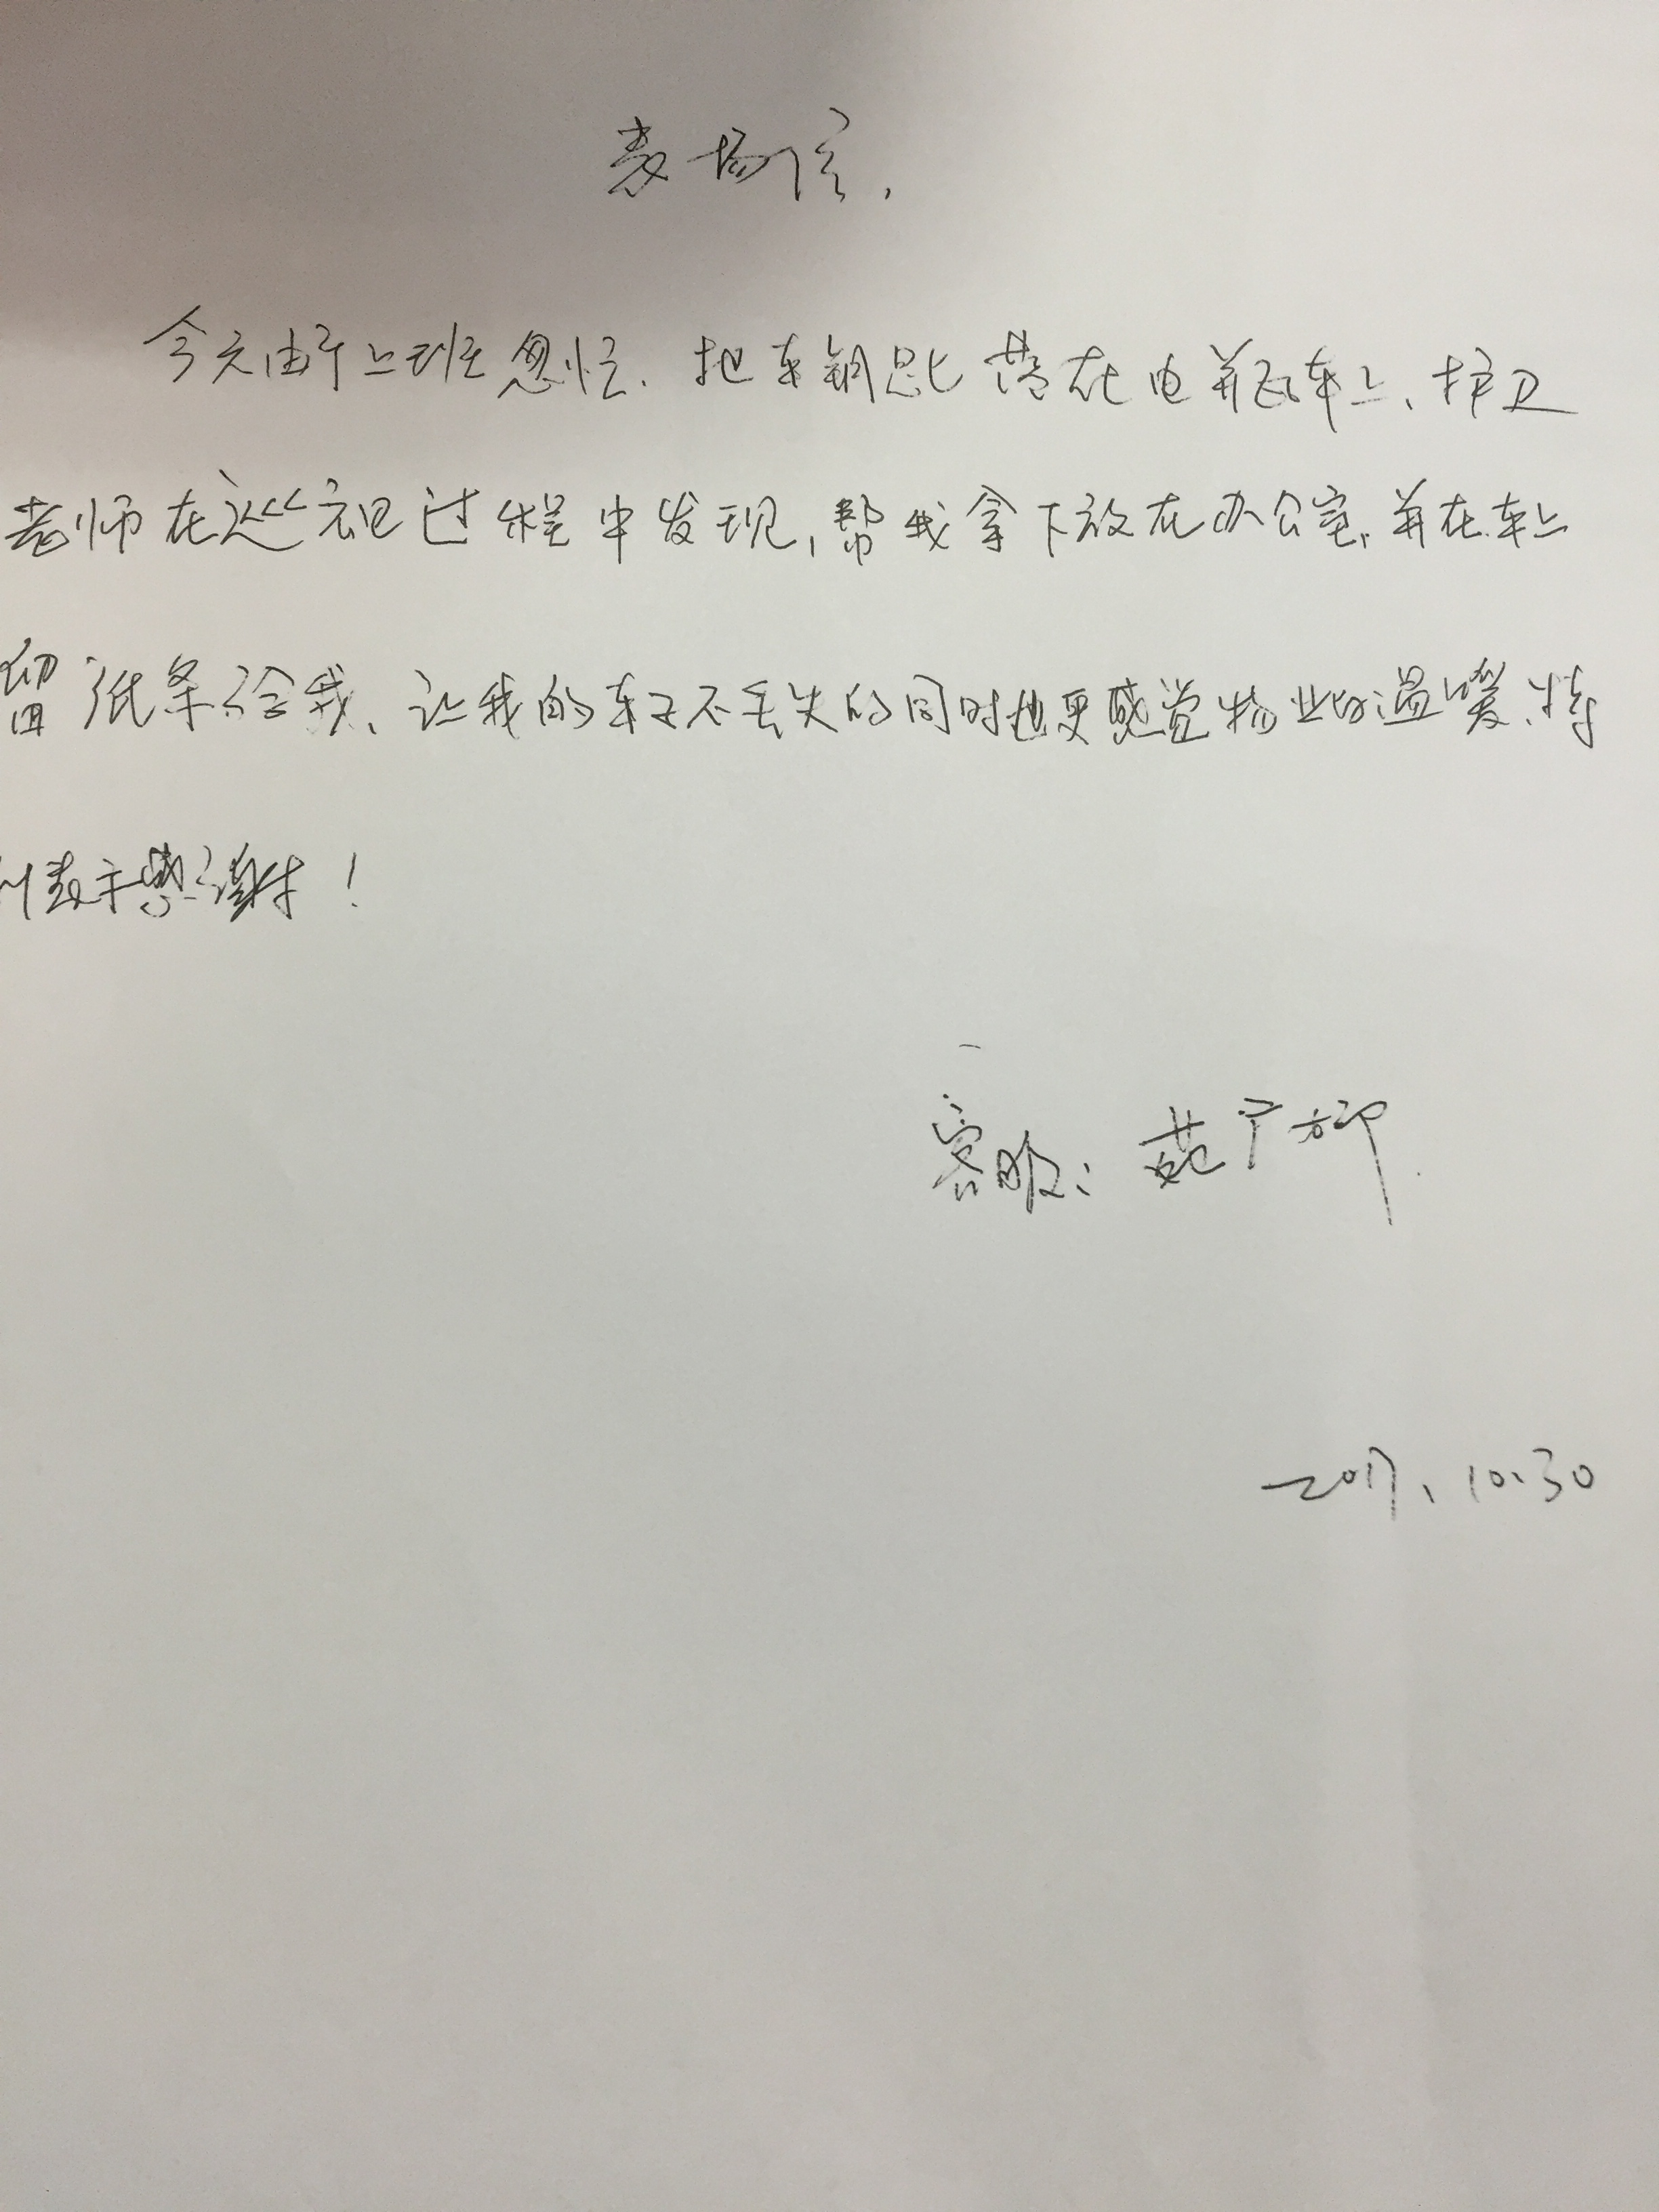 表扬信,
今天由于上班忽忙、把车钥匙落在电并瓦车上、护卫
老师在巡视过程中发现,帮我拿下放在办公室,并在车上
留纸条给我、让我的车子不丢失的同时也更感觉物业的温暖、特
别表示感谢!
客服:范广柳
2017、10、30